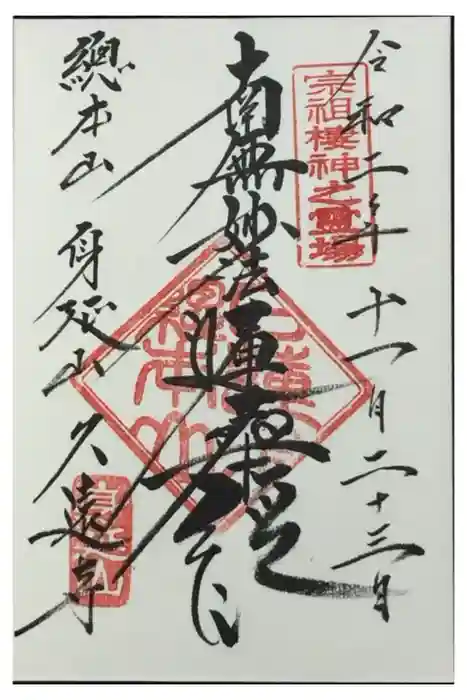 令和二年 十一月二十三日
宗祖棲神之霊場
南無妙法蓮華経
總本山 身延山 久遠寺